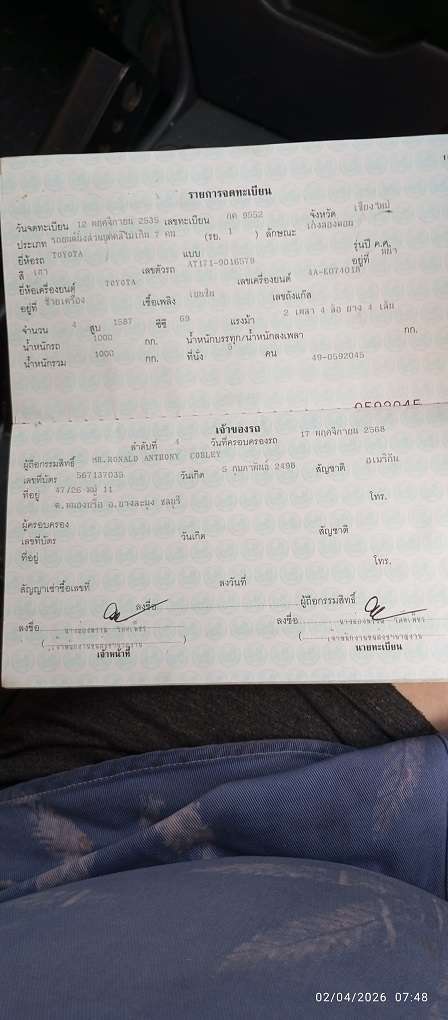 รายการจดทะเบียน
วันจดทะเบียน 12 พฤศจิกายน 2535 เลขทะเบียน กค 9552 จังหวัด เชียงใหม่
ประเภท รถยนต์นั่งส่วนบุคคลไม่เกิน 7 คน (รย. 1 ) ลักษณะ เก๋งสองตอน
ยี่ห้อรถ TOYOTA แบบ รุ่นปี ค.ศ.
สี เทา เลขตัวรถ AT171-9016579 อยู่ที่ หน้า
ยี่ห้อเครื่องยนต์ TOYOTA เลขเครื่องยนต์ 4A-E074018
อยู่ที่ ซ้ายเครื่อง เชื้อเพลิง เบนซิน เลขถังแก๊ส
จำนวน 4 สูบ 1587 ซีซี 69 แรงม้า 2 เพลา 4 ล้อ ยาง 4 เส้น
น้ำหนักรถ 1000 กก. น้ำหนักบรรทุก/น้ำหนักลงเพลา กก.
น้ำหนักรวม 1000 กก. ที่นั่ง คน 49-0592045
0592045
เจ้าของรถ
ลำดับที่ 4 วันที่ครอบครองรถ 17 พฤศจิกายน 2568
ผู้ถือกรรมสิทธิ์ MR.RONALD ANTHONY COBLEY
เลขที่บัตร 567137035 วันเกิด 5 กุมภาพันธ์ 2498 สัญชาติ อเมริกัน
ที่อยู่ 47/26 หมู่ 11 โทร.
ต.หนองปรือ อ.บางละมุง ชลบุรี
ผู้ครอบครอง
เลขที่บัตร วันเกิด สัญชาติ
ที่อยู่ โทร.
สัญญาเช่าซื้อเลขที่ ลงวันที่
ลงชื่อ ผู้ถือกรรมสิทธิ์
ลงชื่อ ลงชื่อ
เจ้าหน้าที่ นายทะเบียน
02/04/2026 07:48